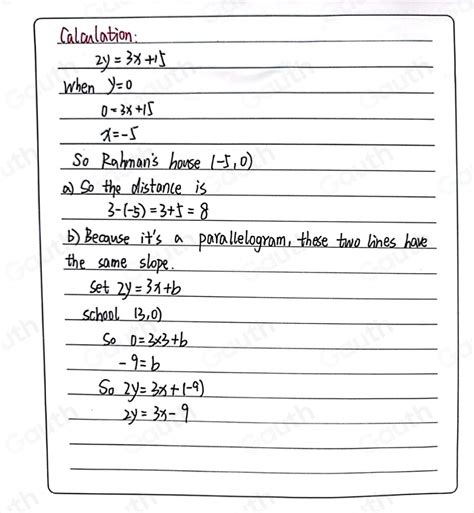 Calculation:
2y = 3x+15
When y=0
0=3x+15
x=-5
So Rahman's house (-5,0)
a) So the distance is
3-(-5)=3+5=8
b) Because it's a parallelogram, these two lines have
the same slope.
Set 2y=3x+b
school (3,0)
So 0=3x3+b
-9=b
So 2y=3x+(-9)
2y=3x-9